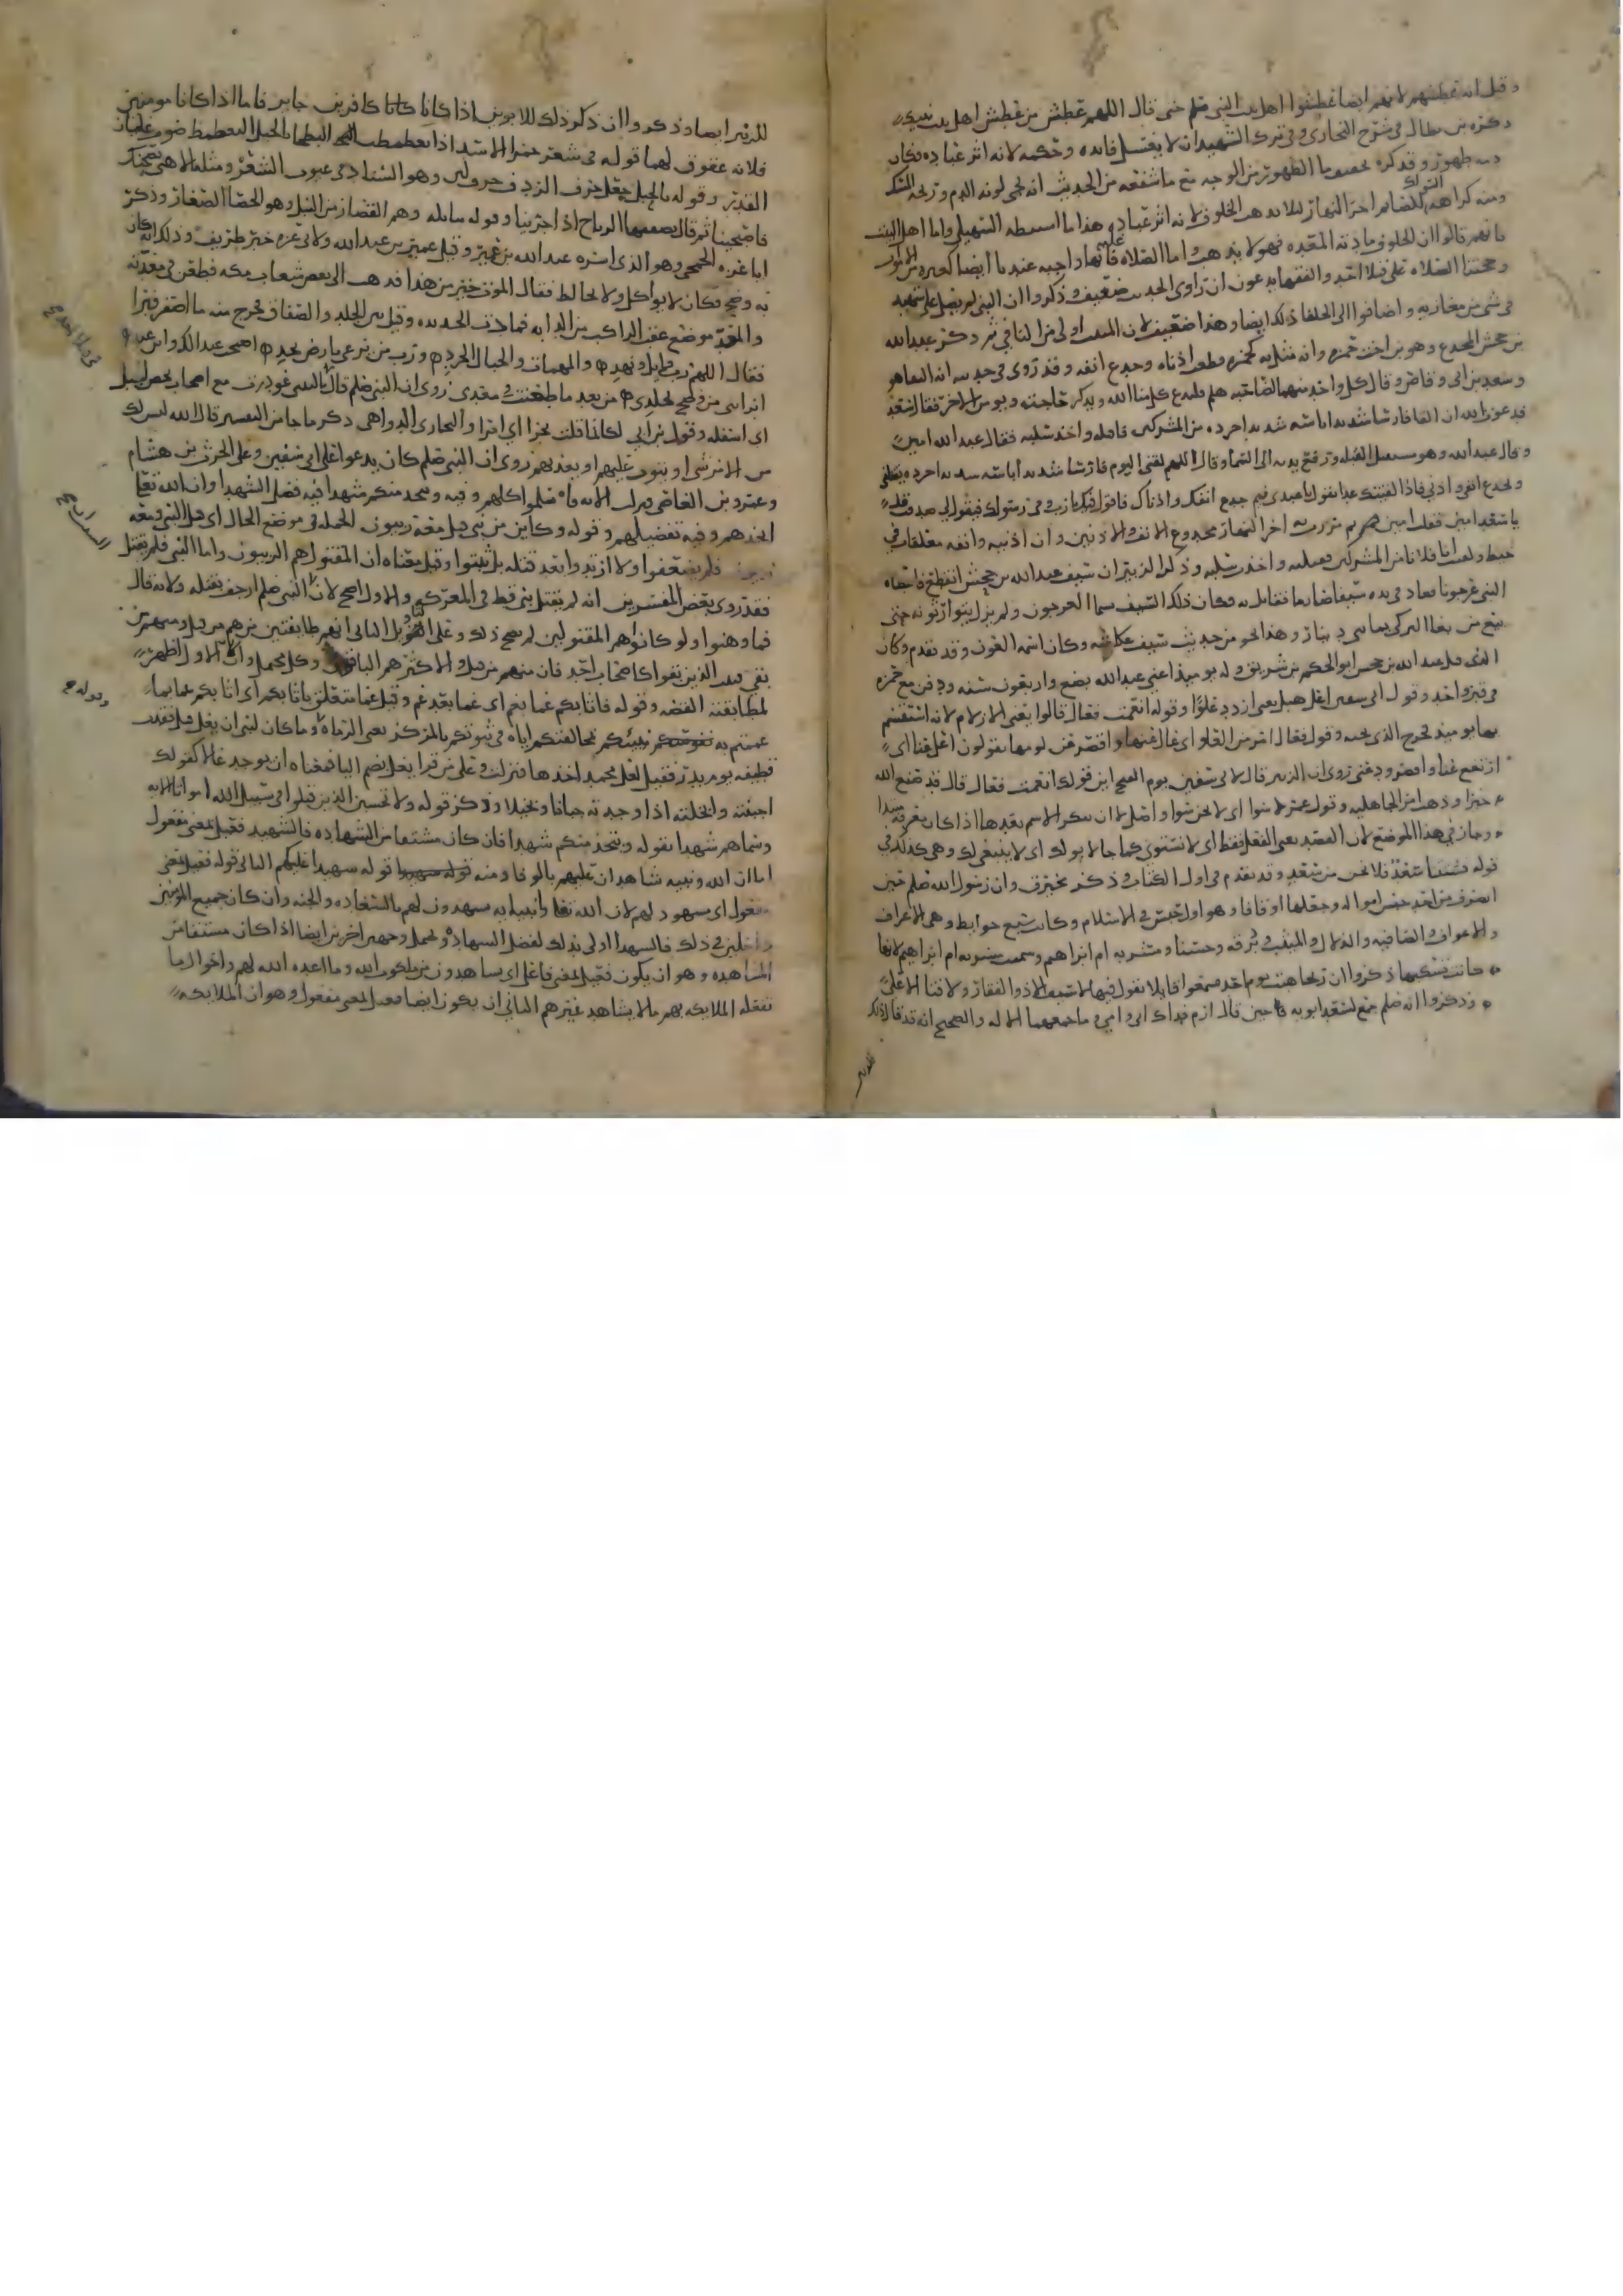 وقيل انه غطشهم لانهم ايضا غطشوا اهل بيت النبي صلم حتى قال اللهم غطش من غطش اهل بيت نبيك
ذكره بن بطال في شرح البخاري وفي ترك الشهيد ان لا يغسل فايده وحكمه لانه اثر عباده فكان
طهور وقد كره الطهور من الوجه مع ما شفعه من الحديث انه يجي لونه الدم وريحه المسك
ومنه كراهه السواك للصايم اخر النهار ليلا يذهب الخلوف لانه اثر عباده هذا ما السهيلي واما اهل البيت
فانهم قالوا ان الخلوف مادته المعده فهو لا يذهب واما الصلاه عليه فانها واجبه عندنا ايضا
وحجتنا الصلاه على قتلا احد والفقها يدعون ان راوي الحديث ضعيف وذكروا ان النبي لم يصل على شهيد
في شي من مغازيه واضافوا الى الخلفا ذلك ايضا وهذا ضعيف لان المثبت اولى من النافي ثم ذكر عبد الله
بن جحش المجدع وهو بن اخت حمزه وانه مثل به كحمزه وقطعت اذناه وجدع انفه وقد روى في حديث انه
وسعد بن ابي وقاص وقال كل واحد منهما لصاحبه هلم فليدع كل منا الله ويذكر حاجته ويومن الاخر فقال سعد
فدعوت الله ان القا فارسا شديدا باسه شديدا حرده من المشركين فاقتله واخذ سلبه فقال عبد الله امين
وقال عبد الله وهو مستقبل القبله ورفع يديه الى السما وقال اللهم لقني اليوم فارسا شديدا باسه شديدا حرده يقتلني
ويجدع انفي واذني فاذا لقيتك غدا تقول يا عبدي فيم جدع انفك واذناك فاقول فيك يا رب وفي رسولك فيقول لي صدقت قل
يا سعد امين فقلت امين ثم مررت به اخر النهار مجدوع الانف والاذنين وان اذنيه وانفه معلقات في
خيط ولقيت انا فلانا من المشركين فقتلته واخذت سلبه وذكر الزبير ان سيف عبد الله بن جحش انقطع فاعطاه
النبي عرجونا فعاد في يده سيفا فقاتل به وكان ذلك السيف يسما العرجون ولم يزل يتوارثونه حتى
بيع من بغا التركي بمايتي دينار وهذا نحو من حديث سيف عكاشه وكان اسمه العون وقد تقدم وكان
الذي قتل عبد الله بن جحش ابو الحكم بن شريق وله يوميذ اعني عبد الله بضع واربعون سنه ودفن مع حمزه
في قبر واحد وقول ابي سفين اعل هبل يعني ازدد علوا وقوله انعمت فقال قالوا يعني الازلام لانه استقسم
بها يوميذ فخرج الذي يحب وقوله فعال امر من العلو اي عال عنها واقصر عن لومها يقولون اعل عنا اي
ارتفع عنا واقصر ودعني روى ان الزبير قال لابي سفين يوم الفتح اين قولك انعمت فقال قال قد صنع الله
خيرا وذهب امر الجاهليه وقول عمر لا سوا اي لا نحن سوا واصل لا ان يتكرر الاسم بعدها اذا كان معرفه مبتدا
وجاز في هذا الموضع لان القصد بعي الفعل فقط اي لا نستوي كما جا لا نولك اي لا ينبغي لك وهي كذلك في
قوله فلا نحن من سعد وقد تقدم في اول الكتاب وذكر مخيرق وان رسول الله صلم حين
انصرف من احد حبس امواله وجعلها اوقافا وهو اول حبس في الاسلام وكانت سبع حوايط وهي الاعراف
والاعواف والصافيه والدلال والميثب وبرقه وحسنا ومشربه ام ابراهيم وسميت مشربه ام ابراهيم لانها
كانت تسكنها ذكروا ان ريحا هبت يوم احد فسمعوا قايلا يقول فيها لا سيف الا ذوالفقار ولا فتا الا علي
وذكروا انه صلم جمع لسعد ابويه فا حين قال ارم فداك ابي وامي وما جمعهما الا له والصحيح انه قد قال ذلك
للزبير
للزبير ايضا وذكروا ان ذكر ذلك للابوين اذا كانا كانا كافرين جايز فاما اذا كانا مومنين
فلانه عقوق لهما قوله في شعر الاسد اذا الغطمطه صوت غليان
القدر وقوله بالجبل جعل حرف الردف حرف لين وهو السناد في عيوب الشعر ومثله الا هبي بصحنك
فاصبحينا ثم قال تصفقها الرياح اذا جرينا وقوله سابله وهم القصار من النبل وهو الحصا الصغار وذكر
ابا عزه الجمحي وهو الذي اسره عبد الله بن عمير وقيل عمير بن عبد الله ولابي عزه خبر طريف وذلك انه كان
به وضح فكان لا يواكل ولا يخالط فقال الموت خير من هذا فذهب الى بعض شعاب مكه فطعن في معده
والمعد موضع عقب الراكب من الدابه فمارت الحديده وقيل بين الجلد والصفاق فخرج منه ما اصفر فبرا
فقال اللهم رب وايل ونهد والمهمات والجبال الجرد ورب من يرعى بارض نجد اصبحت عبدا لك وابن عبد
ابراتني من وضح بجلدي من بعد ما طعنت في معدي روى ان النبي صلم قال ليتني غودرت مع اصحاب نحص الجبل
اي اسفله وقول بن ابي لكانما قلت بجرا اي امرا والبجاري الدواهي ذكر ما جا من التفسير قال الله ليس لك
من الامر شي او يتوب عليهم او يعذبهم روى ان النبي صلم كان يدعوا على ابي سفين وعلى الحرث بن هشام
وعمرو بن العاصي فنزلت الايه فا سلموا كلهم وفيه ويتخذ منكم شهدا فيه فضل الشهدا وان الله تعا
اتخذهم وفيه تفضيلهم وقوله وكاين من نبي قتل معه ربيون الجمله في موضع الحال اي قتل النبي ومعه
ربيون فلم يضعفوا ولا ارتدوا بعد قتله بل ثبتوا وقيل معناه ان المقتول هم الربيون واما النبي فلم يقتل
فقد روى بعض المفسرين انه لم يقتل نبي قط في المعركه والاول اصح لان النبي صلم ارجف بقتله ولانه قال
فما وهنوا ولو كانوا هم المقتولين لم يصح ذلك وعلى التاويل الثاني انهم طايفتين من هم من قتل ومنهم من
بقي فعد الذين بقوا كاصحاب احد فان منهم من قتل والاكثر هم الباقون وكل محمل والاول اظهر
لمطابقته القصه وقوله فاثابكم غما بغم اي غما بعد غم وقيل غما متعلق باثابكم اي اثابكم غما بما
غممتم به نبيكم بمخالفتكم اياه في ثبوتكم بالمركز يعني الرماه وما كان لنبي ان يغل قيل فقدت
قطيفه يوم بدر فقيل لعل محمد اخذها فنزلت وعلى من قرا يغل بضم اليا فمعناه ان يوجد غالا كقولك
اجبنته وابخلته اذا وجدته جبانا وبخيلا وذكر قوله ولا تحسبن الذين قتلوا في سبيل الله امواتا الايه
وسماهم شهدا بقوله ويتخذ منكم شهدا فان كان مشتقا من الشهاده فالشهيد فعيل بمعنى مفعول
اما ان الله ونبيه شاهدان عليهم بالوفا ومنه قوله شهيدا عليكم الثاني قوله فعيل بمعنى
مفعول اي مشهود لهم لان الله تعا وانبيايه يشهدون لهم بالسعاده والجنه وان كان جميع المومنين
داخلين في ذلك فالشهدا اولى بذلك لفضل الشهاده ويحمل وجهين اخرين ايضا اذا كان مشتقا من
المشاهده وهو ان يكون فعيل بمعنى فاعل اي يشاهدون من ملكوت الله وما اعده الله لهم واحوال ما
تفعله الملايكه بهم ما لا يشاهد غيرهم الثاني ان يكون ايضا فعيل بمعنى مفعول وهو ان الملايكه